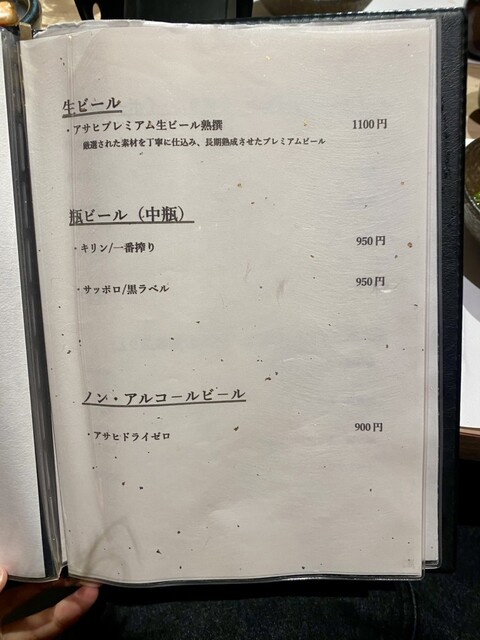 生ビール
・アサヒプレミアム生ビール熟撰 1100円
厳選された素材を丁寧に仕込み、長期熟成させたプレミアムビール
瓶ビール（中瓶）
・キリン/一番搾り 950円
・サッポロ/黒ラベル 950円
ノン・アルコールビール
・アサヒドライゼロ 900円